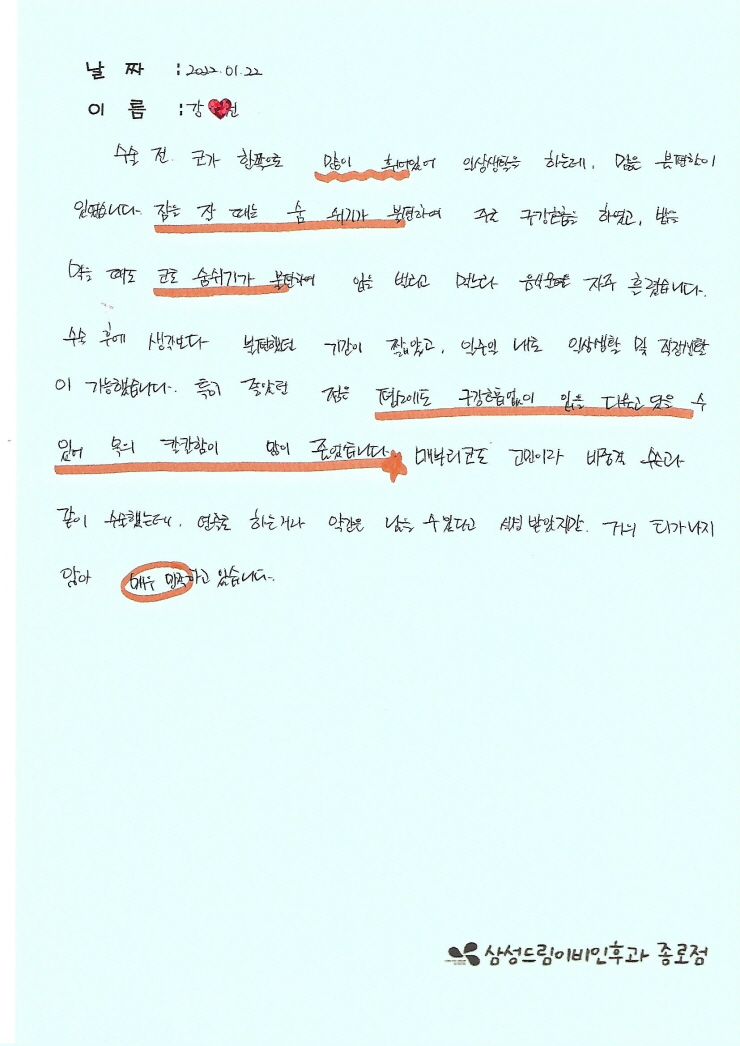 날 짜 : 2022.01.22
이 름 : 강 ❤ 원
수술 전. 코가 한쪽으로 많이 휘어있어 일상생활을 하는데, 많은 불편함이
있었습니다. 잠을 잘 때는 숨 쉬기가 불편하여 주로 구강호흡을 하였고, 밥을
먹을 때도 코로 숨쉬기가 불편하여 입을 벌리고 먹느라 음식물을 자주 흘렸습니다.
수술 후에 생각보다 불편했던 기간이 짧았고, 일주일 내로 일상생활 및 직장생활
이 가능했습니다. 특히 좋았던 점은 구강호흡없이 입을 다물고 닫을 수
있어 목의 칼칼함이 많이 줄었습니다. 매부리코도 고민이라 비중격 수술과
같이 수술했는데, 연주로 하는거나 약간은 남을 수 있다고 설명 받았지만, 거의 티가나지
않아 매우 만족하고 있습니다.
삼성드림이비인후과 종로점